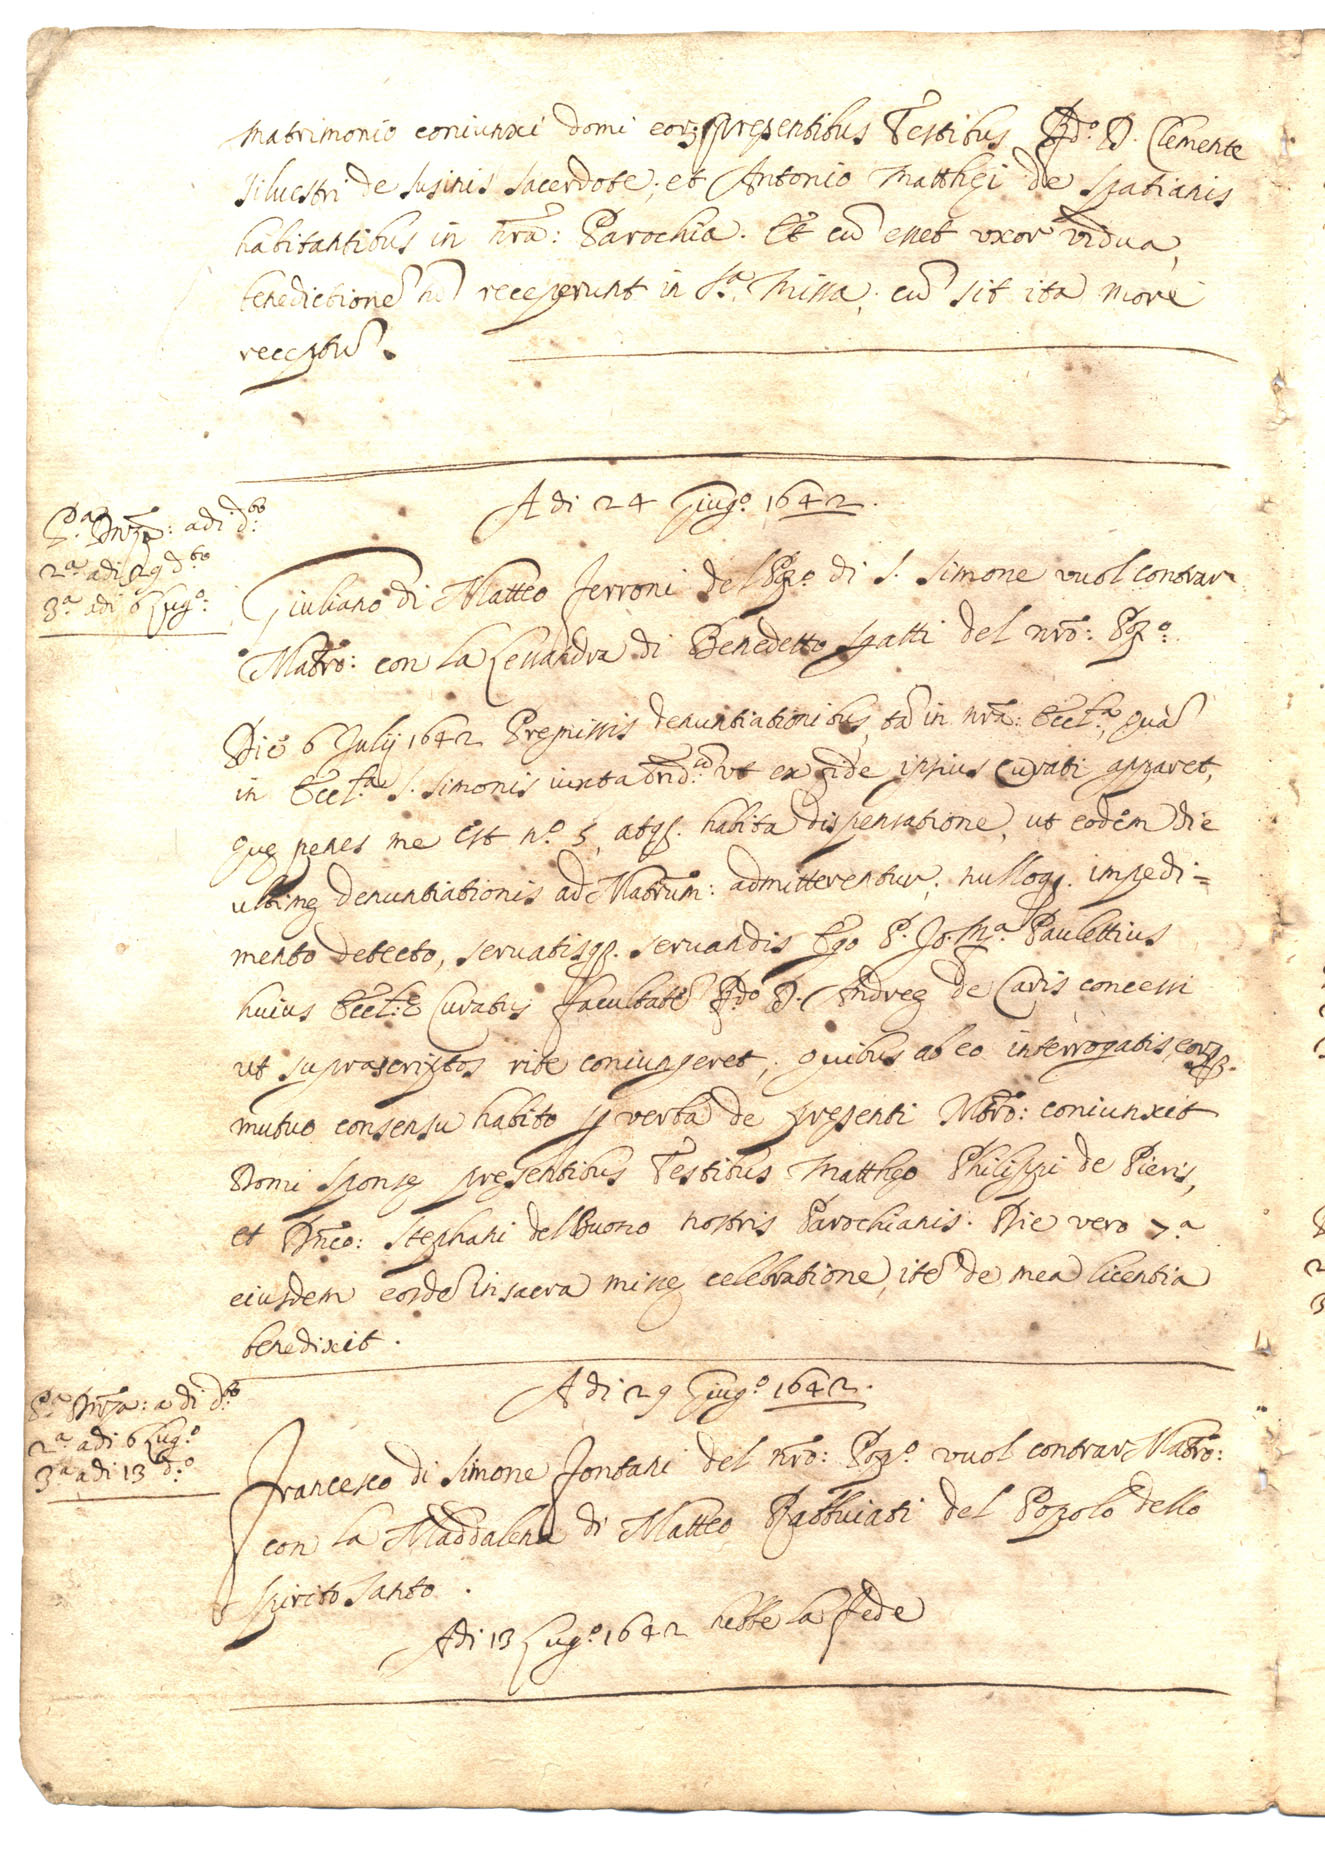 matrimonio coniunxi domi eorz presentibus Testibus Rdo. D. Clemente
siluestri de susinis sacerdote; et Antonio Matthei de spatianis
habitantibus in nrã: Parochia. Et cũ esset uxor vidua,
benedictionẽ nõ receperunt in S.a Missa, cũ sit ita more
receptũ.
A di 24 Giug.o 1642.
P.a Dnza: adi d.to
2.a adi 29 d.to
3.a adi 6 Lug.o:
Giuliano di Matteo Ferroni del Ppo. di S. Simone vuol contrar
Matro: con la Lessandra di Benedetto Gatti del nro: Ppo.
Die 6 Julij 1642 Premissis denuntiationibus, tã in nrã: Eccl.a, quã
in Eccl.a S. Simonis iuxta ut ex fide ipsius Curati apparet,
que penes me est n.o 5, atq. habita dispensatione, ut eodem die
ultime denuntiationis ad Matrum: admitterentur, nulloq. impedi=
mento detecto, seruatisq. seruandis Ego P. Jo. Ma. Paulettius
huius Eccl.e Curatus facultatẽ Rdo D. Andree de Caris concessi
ut suprascriptos rite coniungeret, quibus ab eo interrogatis, eorzq.
mutuo consensu habito p verba de presenti Mtro: coniunxit
Domi sponse presentibus Testibus Mattheo Philippi de Pieris,
et Dnico: Stephani del Buono nostris Parochianis. Die vero 7.a
eiusdem eosdẽ in sacra misse celebratione, itẽ de mea licentia
benedixit.
A di 29 Giug.o 1642.
P.a Dnza: a di d.to
2.a adi 6 Lug.o
3.a adi 13 d.o
Francesco di Simone Fontani del nro: Ppo. vuol contrar Matro:
con la Maddalena di Matteo Rabbuiati del Popolo dello
spirito Santo.
Adi 13 Lug.o 1642 hebbe la fede